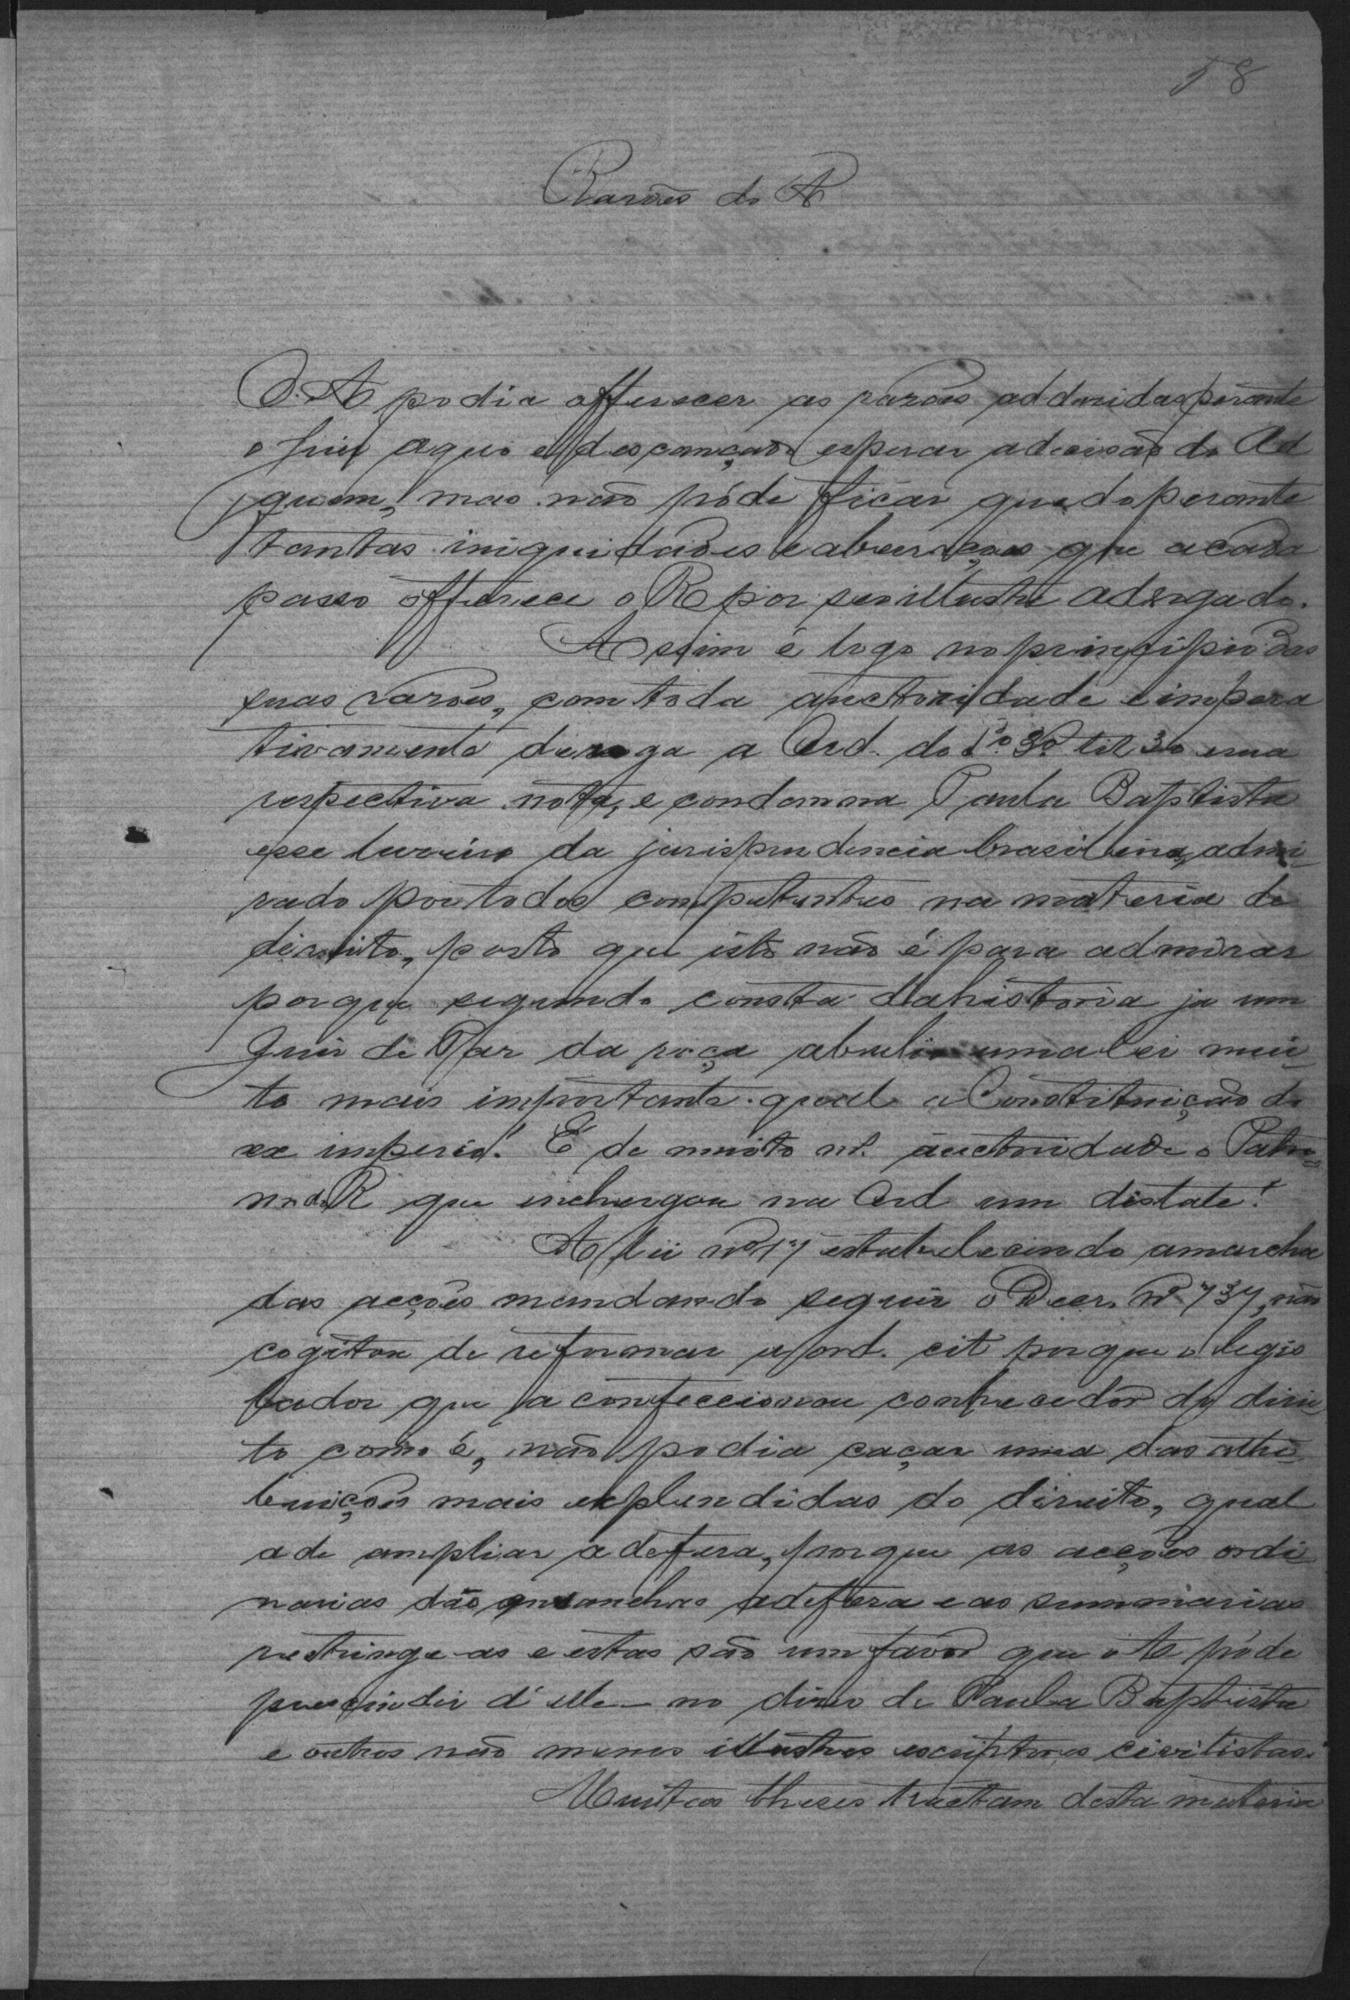 58
Rasões do A
O A podia offerecer as rasões addusidas perante
o Juiz aquo e descançado esperar a decisão do Ad
quem, mas não póde ficar quedo perante
tantas iniquidades e aberações que a cada
passo offerece o R por seu illustre advogado.
Assim é logo no principio das
suas rasões, com toda auctoridade e impera
tivamente deroga a Ord. do L.º 3º tit 30 e sua
respectiva nota, e condemna Paula Baptista
esse luzeiro da jurisprudencia brasileira, admi
rado por todos competentes na materia de
direito, posto que isto não é para admirar
porque segundo consta da historia ja um
Juiz de Paz da roça abulio uma lei mui
to mais importante qual a Constituição do
ex imperio! É de muito mª auctoridade o Patro
no do R que inchergou na Ord um distate!
A lei nº 17 estabelecendo a marcha
das acções mandando seguir o Decr. nº 737, não
cogitou de reformar a ord. cit porque o legis
lador que a confeccionou conhecedor do direi
to como é, não podia caçar uma das attri
buições mais esplendidas do direito, qual
a de ampliar a defesa, porque as acções ordi
narias dão ensanchas a defesa e as summarias
restringe-as e estas são um favor que o A póde
prescindir d'elle no diser de Paula Baptista
e outros não menos illustres escriptores civilistas.
Muitas theses tractam desta materia